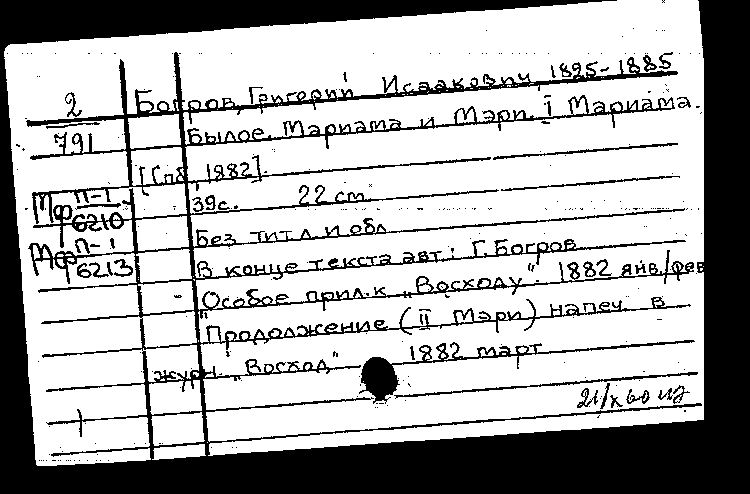 2
791
Богров, Григорий Исаакович, 1825-1885
Былое. Мариама и Мэри. I Мариама.
[Спб, 1882].
Мф П-1 6210
39с. 22 cm.
Без тит. л. и обл
Мф П-1 6213
В конце текста авт: Г. Богров
"Особое прил. к „Восходу". 1882 янв/фев
"Продолжение (II, Мэри) напеч. в
журн. „Восход" 1882 март